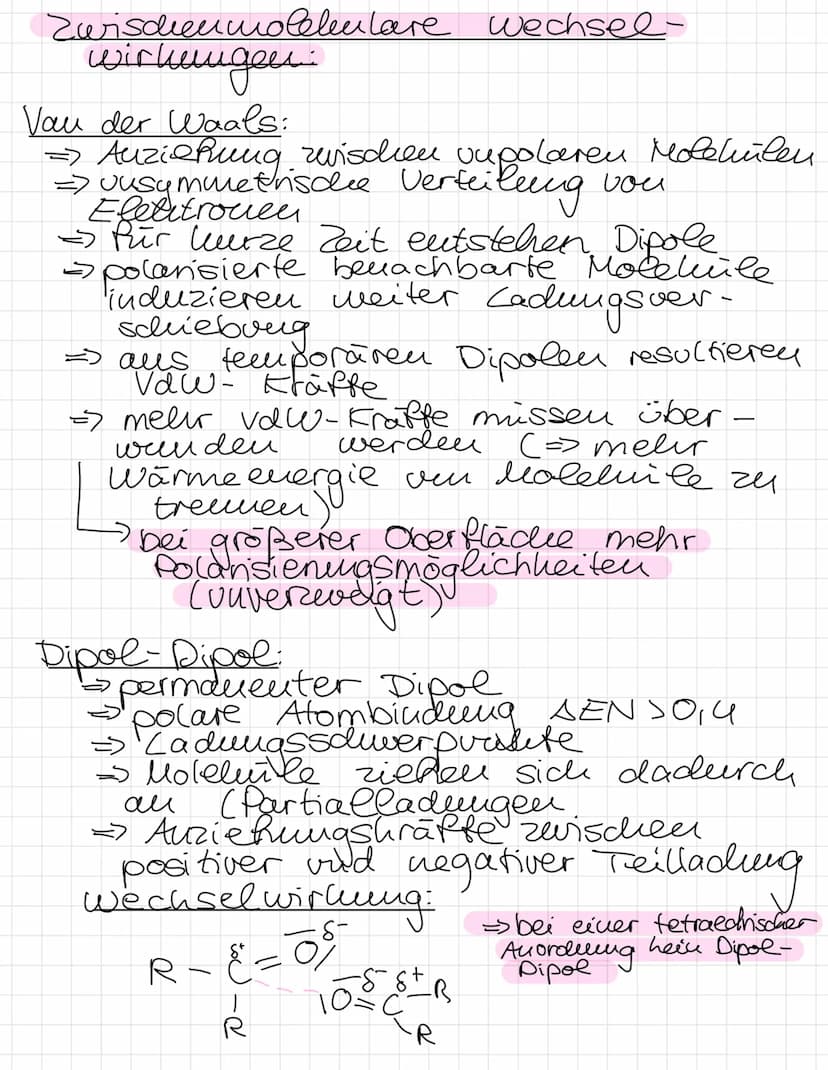 Zwischenmolekulare Wechsel-
wirkungen:
Van der Waals:
=> Anziehung zwischen unpolaren Molekülen
=> unsymmetrische Verteilung von
Elektronen
=> für kurze Zeit entstehen Dipole
=> polarisierte benachbarte Moleküle
induzieren weiter Ladungsver-
schiebung
=> aus temporären Dipolen resultieren
VdW-Kräfte
=> mehr vdW-Kräfte müssen über-
wunden werden (=> mehr
Wärmeenergie um Moleküle zu
trennen)
bei größerer Oberfläche mehr
Polarisierungsmöglichkeiten
(unverzweigt)
Dipol-Dipol:
=> permanenter Dipol
=> polare Atombindung ΔEN>0,4
=> Ladungsschwerpunkte
=> Moleküle ziehen sich dadurch
an (Partialladungen
=> Anziehungskräfte zwischen
positiver und negativer Teilladung
Wechselwirkung:
=> bei einer tetraedrischer
Anordnung kein Dipol-
Dipol
δ-
δ+
R - C = O
R
δ- δ+
O = C - R
R